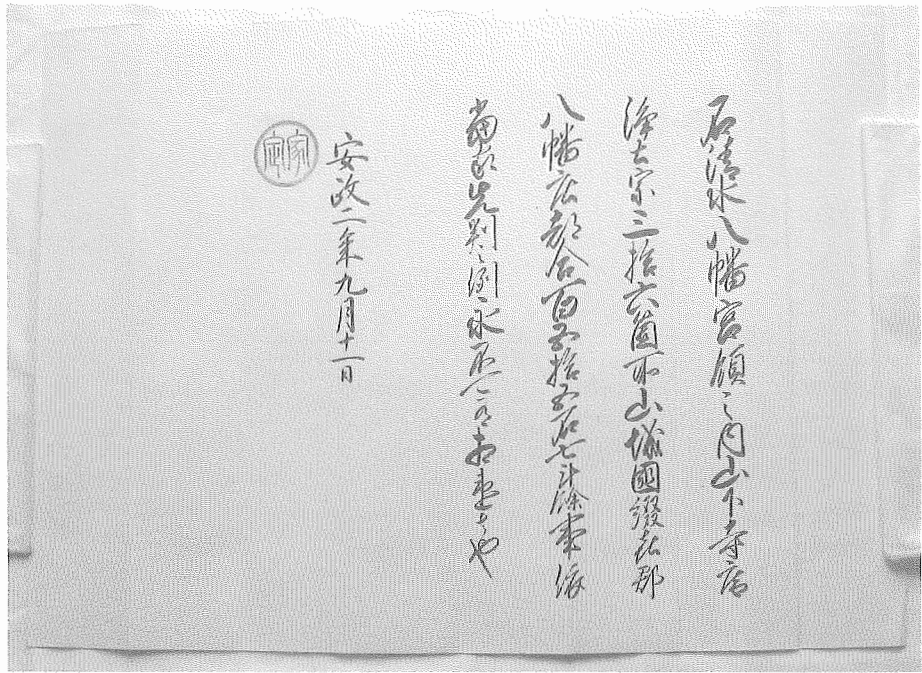 石清水八幡宮領之内山下寺庵
浄土宗三拾六箇所山城國綴喜郡
八幡庄都合百五拾五石七斗餘事依
當家先判之例永不可有相違者也
安政二年九月十一日
家定